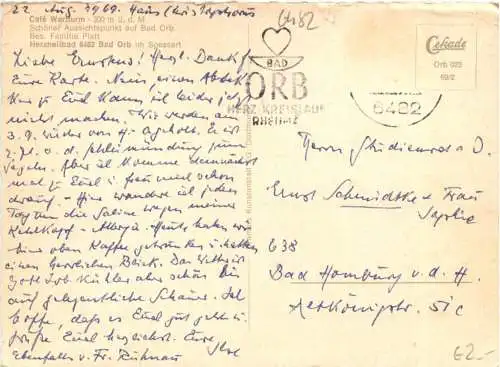 22. Aug. 1969. Haus
6482
Café Wartturm - 300 m ü. d. M
Schöner Aussichtspunkt auf Bad Orb.
Bes. Familie Platt
Herzheilbad 6482 Bad Orb im Spessart
Liebe Ernstens! Herzl. Dank f.
Eure Karte. Nein, einen Abstek
zu Euch kann ich leider jetzt
nicht machen. Wir werden am
3. 9. hier von H. abgeholt. Er ist
z. Zt. a. d. Schleimündung zum
Segeln. Aber ich komme demnächst
mal zu Euch u. freu mich schon
drauf. - Hier wandere ich jeden
Tag um die Saline wegen meiner
Kehlkopf - Allergie. Heute haben wir
hier oben Kaffee getrunken u. hatten
einen herrlichen Blick. Das Wetter ist
Gott Lob kühler aber schön bis
auf gelegentliche Schauer. Ich
hoffe, dass es Euch gut geht u.
grüße Euch herzlichst. Eure
Ilse
Ebenfalls v. Fr. Rühnau
BAD
ORB
HERZ-KREISLAUF
RHEUMA
6482
Cekade
Orb 023
69/2
Herrn Studienrat a. D.
Ernst Schmidtke u Frau
Sophie
638
Bad Homburg v. d. H.
Altkönigstr. 51c
€2-